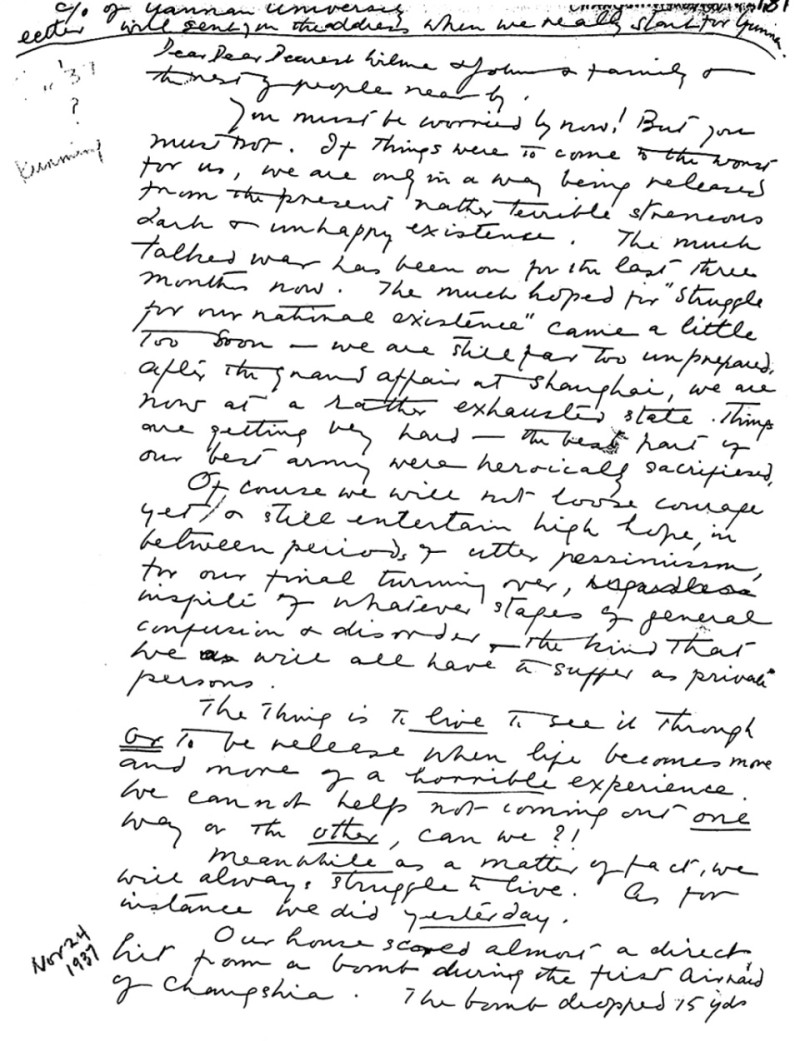 c/o of Yannan University
letter will send you the address when we really start for Yunna.
"'37
?
Kunming
Dear Dear Dearest Wilma & John & Family &
the rest of people near by.
You must be worried by now! But you
must not. If things were to come to the worst
for us, we are only in a way being released
from the present rather terrible streneous
dark & unhappy existence. The much
talked war has been on for the last three
months now. The much hoped for "struggle
for our national existence" came a little
too soon — we are still far too unprepared.
After the grand affair at Shanghai, we are
now at a rather exhausted state. Things
are getting very hard — the best part of
our best army were heroically sacrificed.
Of course we will not loose courage
yet, & still entertain high hope, in
between periods of utter pessimissm,
for our final turning over, regardless
inspite of whatever stages of general
confusion & disorder & the kind that
we as will all have to suffer as private
persons.
The thing is to live to see it through
or to be release when life becomes more
and more of a horrible experience.
We can not help not coming out one
way or the other, can we?!
Meanwhile as a matter of fact, we
will always struggle to live. As for
instance we did yesterday.
Nov 24
1937
Our house scored almost a direct
hit from a bomb during the first Air raid
of Changshia. The bomb dropped 15 yds